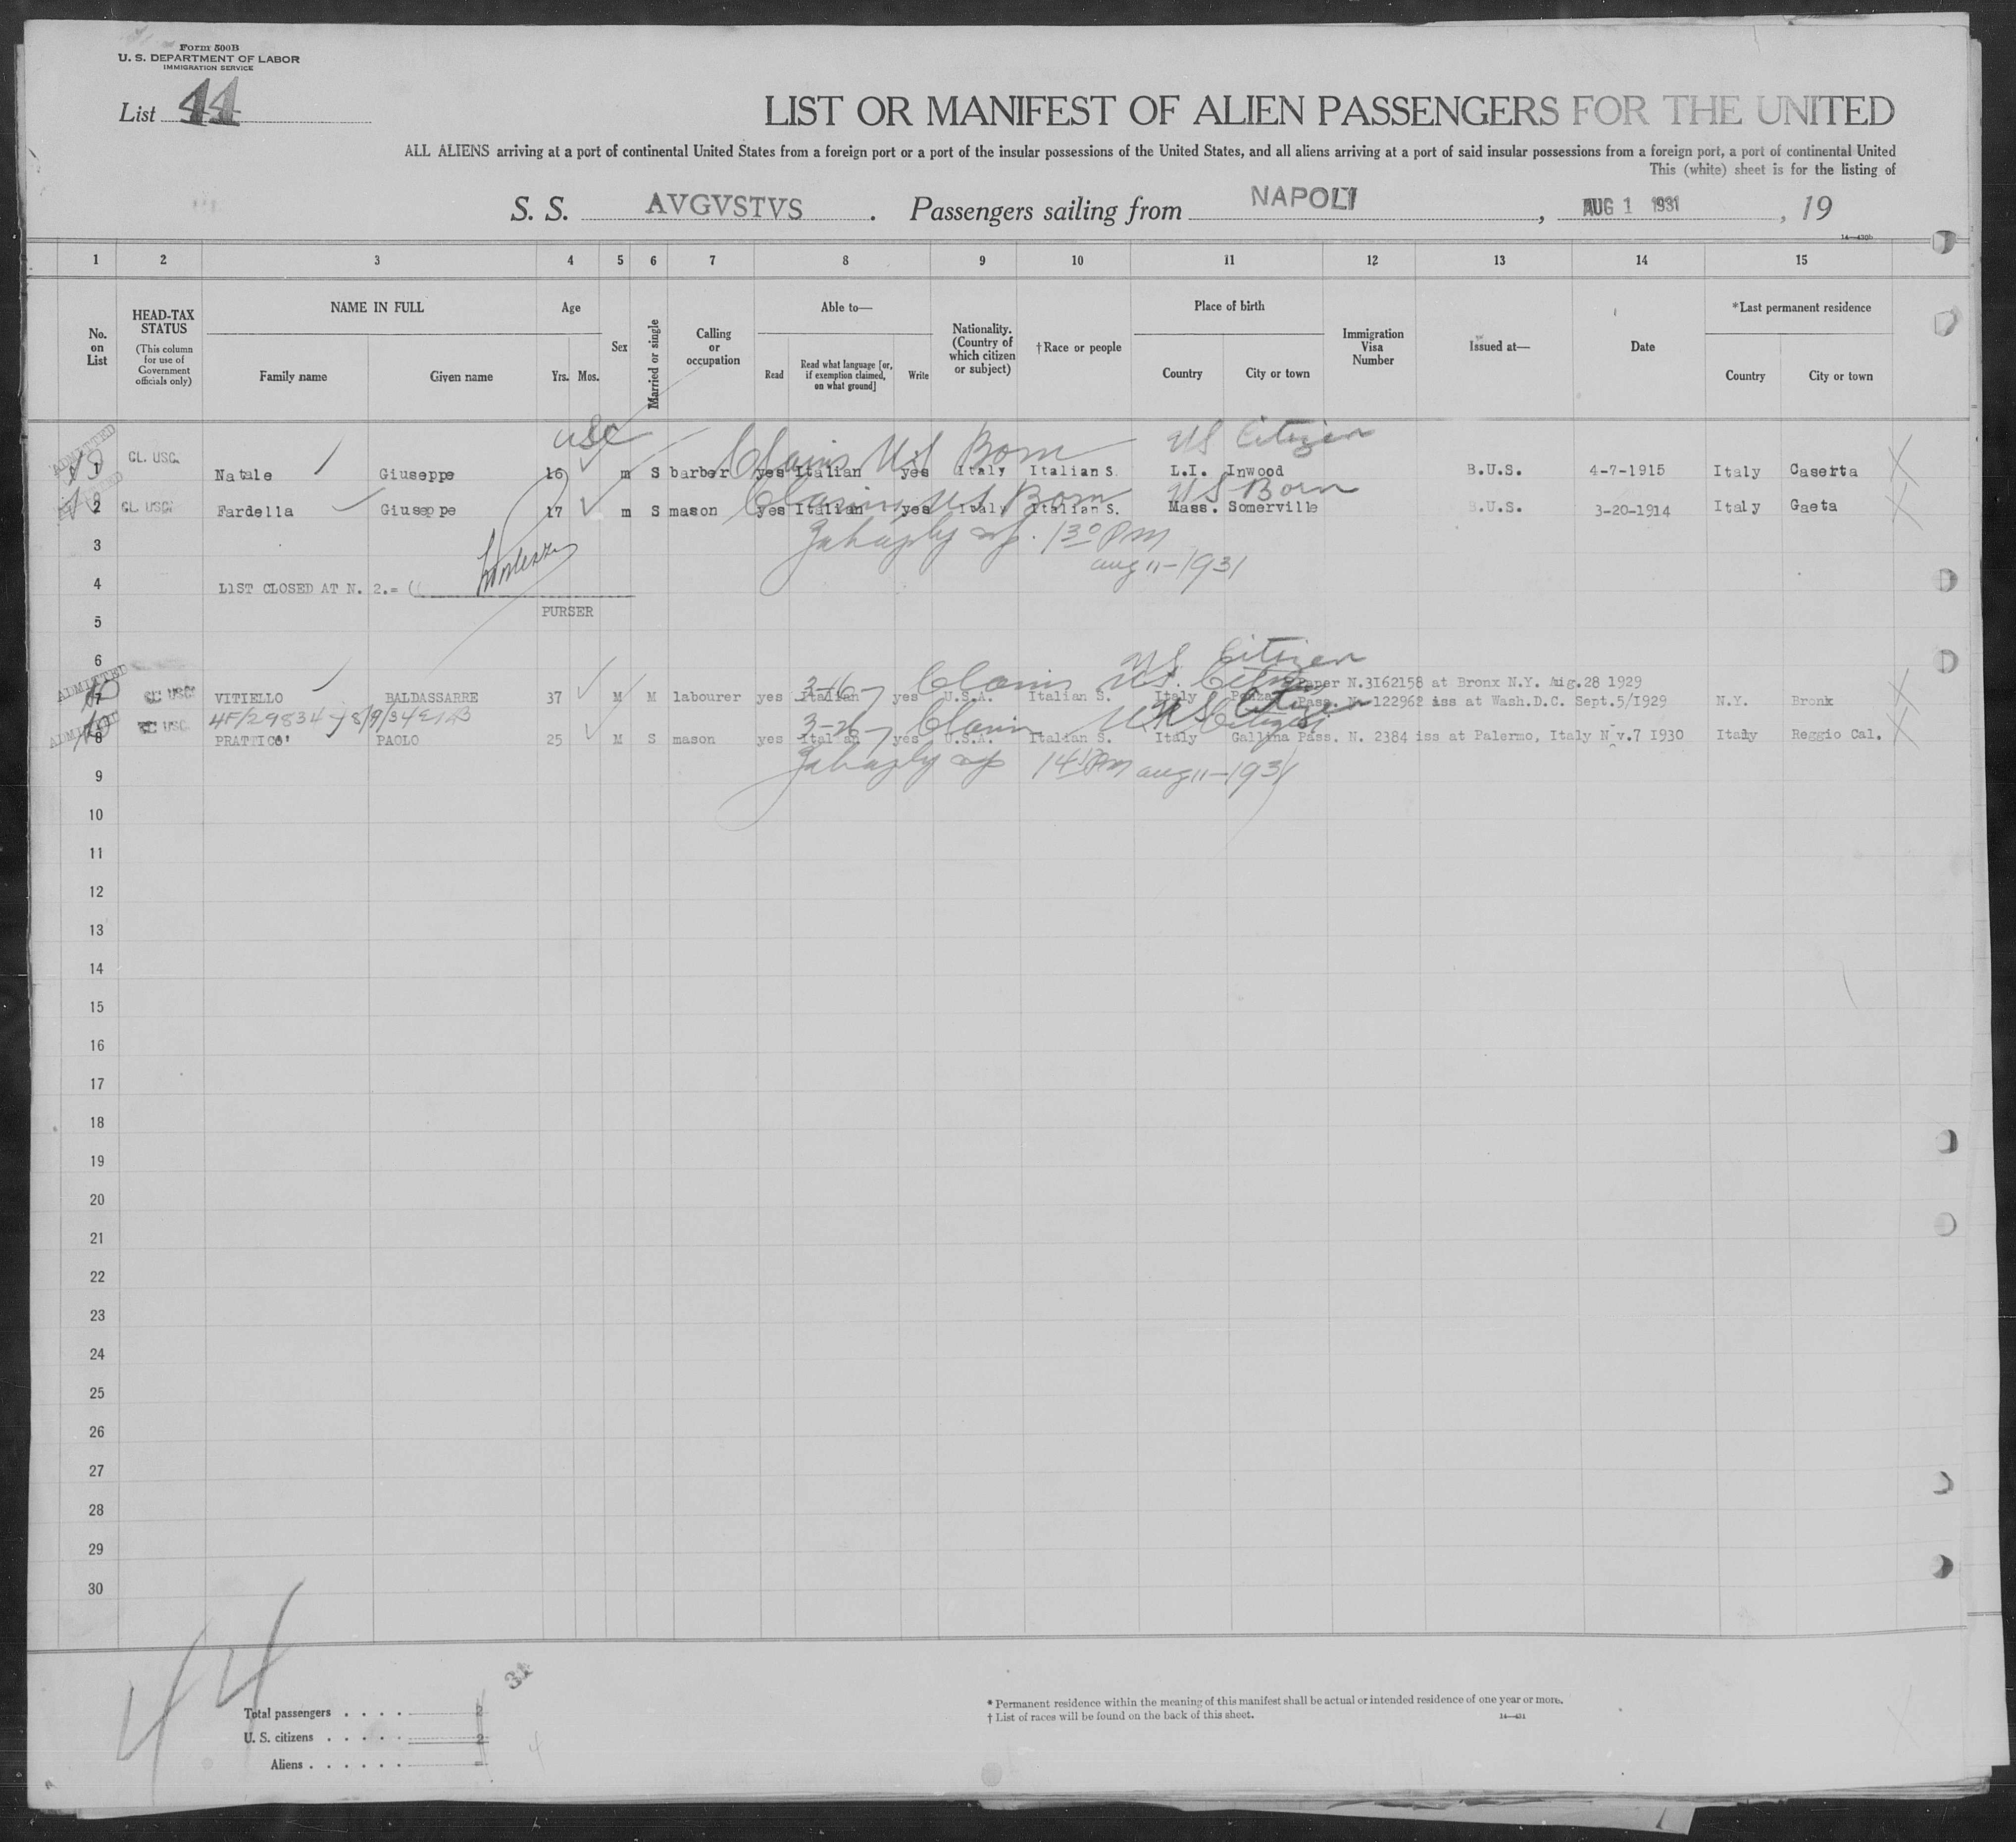 Form 500B
U. S. DEPARTMENT OF LABOR
IMMIGRATION SERVICE
List 44
LIST OR MANIFEST OF ALIEN PASSENGERS FOR THE UNITED
ALL ALIENS arriving at a port of continental United States from a foreign port or a port of the insular possessions of the United States, and all aliens arriving at a port of said insular possessions from a foreign port, a port of continental United
This (white) sheet is for the listing of
S. S. AVGVSTVS . Passengers sailing from NAPOLI , AUG 1 1931 , 19
14—430b
1 2 3 4 5 6 7 8 9 10 11 12 13 14 15
No. on List
HEAD-TAX STATUS (This column for use of Government officials only)
NAME IN FULL
Family name Given name
Age
Yrs. Mos.
Sex
Married or single
Calling or occupation
Able to—
Read Read what language [or, if exemption claimed, on what ground] Write
Nationality. (Country of which citizen or subject)
†Race or people
Place of birth
Country City or town
Immigration Visa Number
Issued at—
Date
*Last permanent residence
Country City or town
usc
US Citizen
Claims US Born
ADMITTED
1 CL. USC. Natale Giuseppe 16 m S barber yes Italian yes Italy Italian S. L.I. Inwood B.U.S. 4-7-1915 Italy Caserta
Claims US Born US Born
2 CL USC. Fardella Giuseppe 17 m S mason yes Italian yes Italy Italian S. Mass. Somerville B.U.S. 3-20-1914 Italy Gaeta
3
130 PM
aug 11-1931
4 LIST CLOSED AT N. 2.= (
PURSER
5
6
US. Citizen
Claims US. Citizen
paper N.3162158 at Bronx N.Y. Aug.28 1929
ADMITTED
7 CL USC VITIELLO BALDASSARRE 37 M M labourer yes Italian yes U.S.A. Italian S. Italy Ponza Pass. N. 122962 iss at Wash.D.C. Sept.5/1929 N.Y. Bronk
4F/29834
Claims US Citizen
ADMITTED
8 CL USC. PRATTICO' PAOLO 25 M S mason yes Italian yes U.S.A. Italian S. Italy Gallina Pass. N. 2384 iss at Palermo, Italy Nov.7 1930 Italy Reggio Cal.
aug 11-1931
9
10
11
12
13
14
15
16
17
18
19
20
21
22
23
24
25
26
27
28
29
30
44
Total passengers . . . . 2
U. S. citizens . . . . . 2
Aliens . . . . . . =
4
* Permanent residence within the meaning of this manifest shall be actual or intended residence of one year or more.
† List of races will be found on the back of this sheet.
14—431